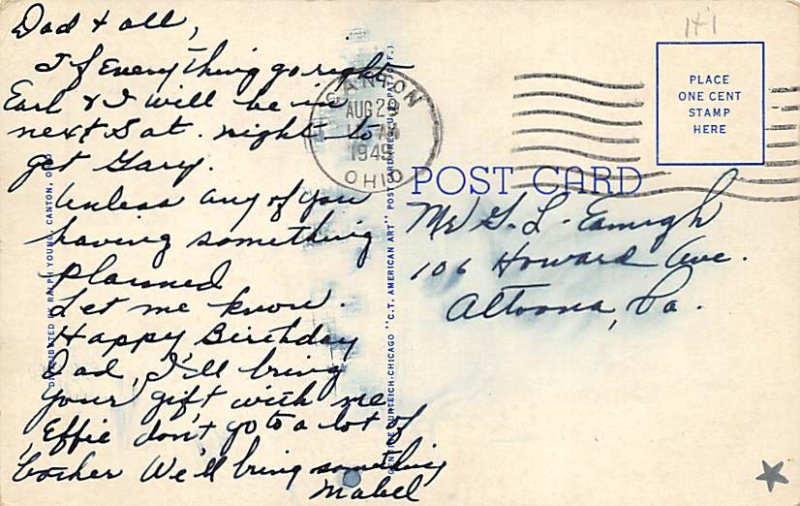 Dad & all,
If Everything go right
Earl & I will be in
next Sat. night to
get Gary.
Unless any of you
having something
planned
Let me know.
Happy Birthday
Dad, I'll bring
your gift with me,
Effie don't go to a lot of
bother We'll bring something
Mabel
CANTON
AUG 2
AM
1949
OHIO
1+1
PLACE
ONE CENT
STAMP
HERE
POST CARD
Mr G. L.
106 Howard Ave.
Altoona, Pa.
DISTRIBUTED BY RALPH YOUNG, CANTON, OHIO
CHICAGO "C.T. AMERICAN ART" POST CARD